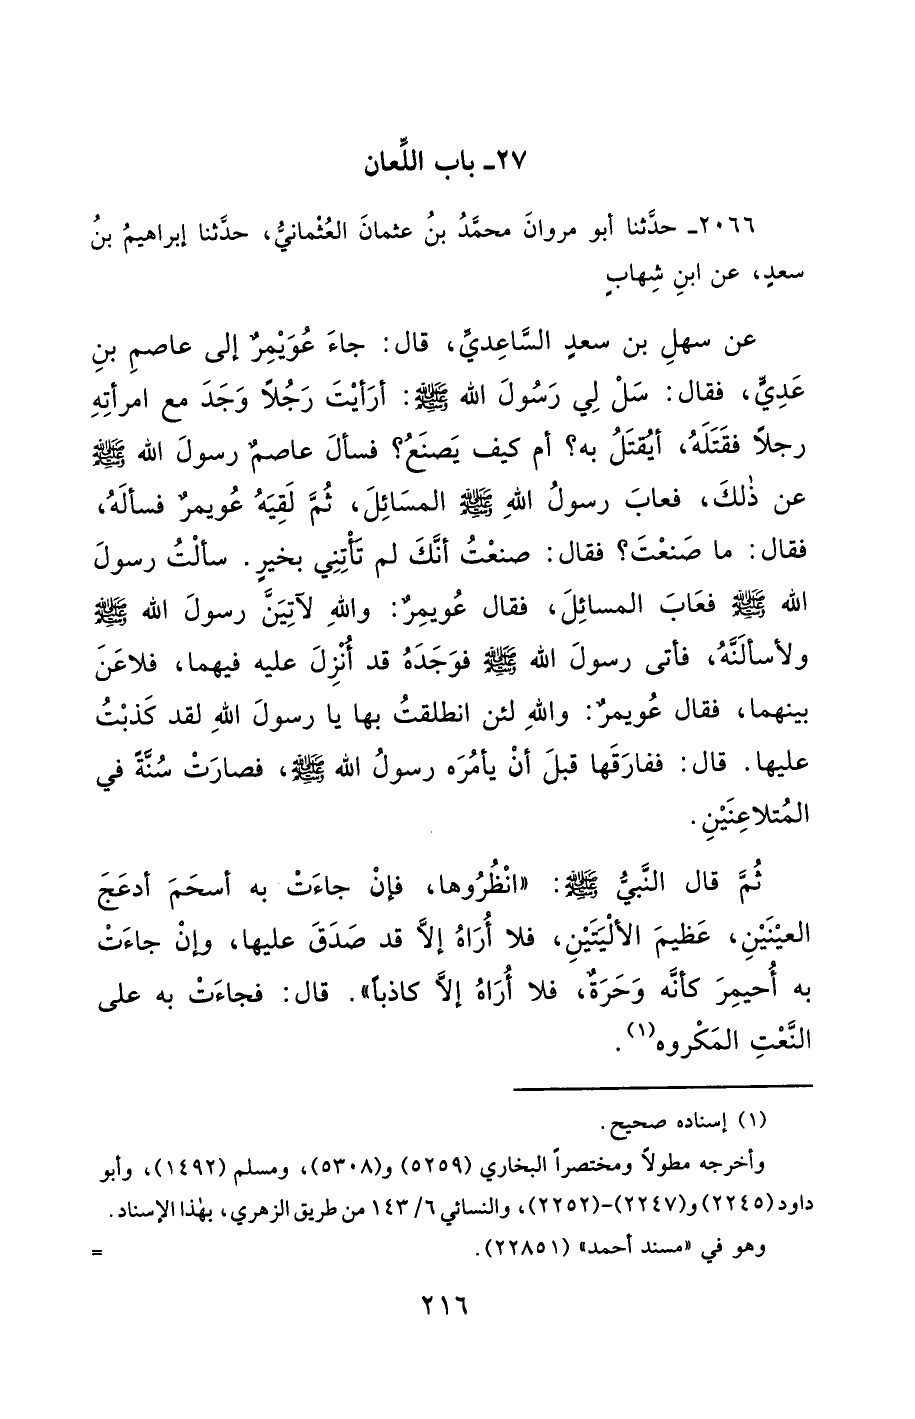 ٢٧ـ باب اللِّعان
٢٠٦٦ـ حدَّثنا أبو مروانَ محمَّدُ بنُ عثمانَ العُثْمانيُّ، حدَّثنا إبراهيمُ بنُ
سعدٍ، عن ابنِ شِهابٍ
عن سهلِ بن سعدٍ السَّاعِديِّ، قال: جاءَ عُوَيْمِرٌ إلى عاصمِ بنِ
عَدِيٍّ، فقال: سَلْ لِي رَسُولَ الله ﷺ: أرَأيْتَ رَجُلاً وَجَدَ مع امرأتِهِ
رجلاً فقَتَلَهُ، أيُقتَلُ به؟ أم كيف يَصنَعُ؟ فسألَ عاصمٌ رسولَ الله ﷺ
عن ذٰلكَ، فعابَ رسولُ اللهِ ﷺ المسَائِلَ، ثُمَّ لَقِيَهُ عُويمرٌ فسألَهُ،
فقال: ما صَنعْتَ؟ فقال: صنعْتُ أنَّكَ لم تَأْتِنِي بخيرٍ. سألْتُ رسولَ
الله ﷺ فعَابَ المسائِلَ، فقال عُويمِرٌ: واللهِ لآتِيَنَّ رسولَ الله ﷺ
ولأسألَنَّهُ، فأتى رسولَ الله ﷺ فوَجَدَهُ قد أُنْزِلَ عليه فيهما، فلاعَنَ
بينهما، فقال عُويمرٌ: واللهِ لئن انطلقتُ بها يا رسولَ اللهِ لقد كَذبْتُ
عليها. قال: ففارَقَها قبلَ أنْ يأمُرَه رسولُ الله ﷺ، فصارَتْ سُنَّةً في
المُتلاعِنَيْنِ.
ثُمَّ قال النَّبيُّ ﷺ: «انْظُرُوها، فإنْ جاءَتْ به أسحَمَ أدعَجَ
العيْنَيْنِ، عَظِيمَ الألْيَتَيْنِ، فلا أُرَاهُ إلاَّ قد صَدَقَ عليها، وإنْ جاءَتْ
به أُحيمِرَ كأنَّه وَحَرَةٌ، فلا أُرَاهُ إلاَّ كاذباً». قال: فجاءَتْ به على
النَّعْتِ المَكْروه(١).
(١) إسناده صحيح.
وأخرجه مطولاً ومختصراً البخاري (٥٢٥٩) و(٥٣٠٨)، ومسلم (١٤٩٢)، وأبو
داود (٢٢٤٥) و(٢٢٤٧)-(٢٢٥٢)، والنسائي ٦/ ١٤٣ من طريق الزهري، بهٰذا الإسناد.
وهو في «مسند أحمد» (٢٢٨٥١). =
٢١٦